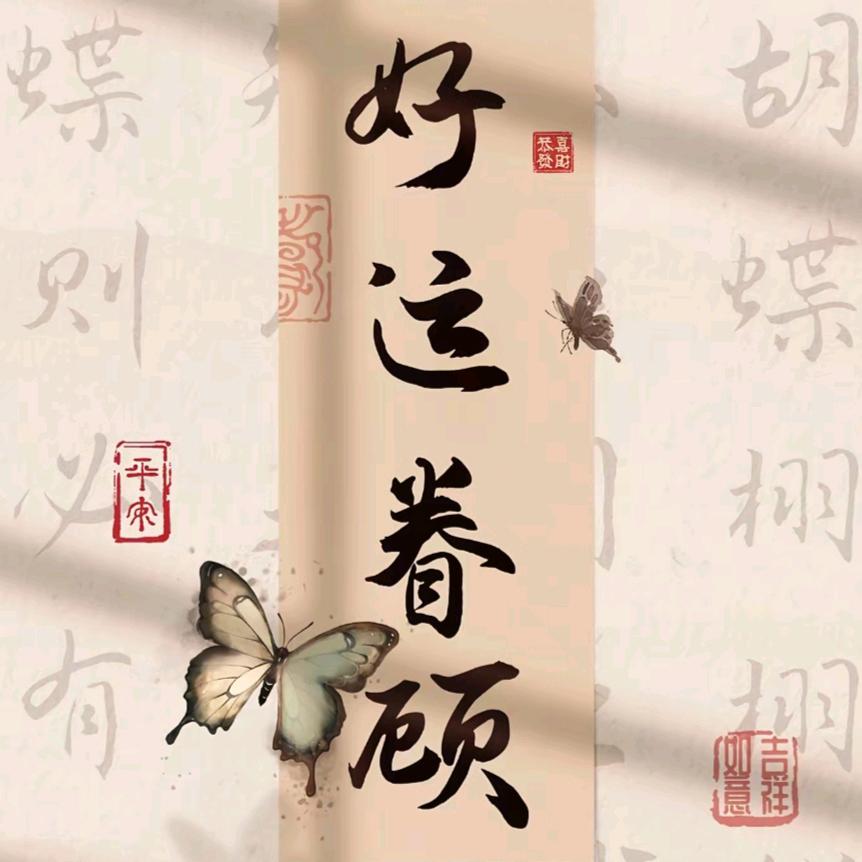 好运眷顾
恭喜發财
平安
吉祥如意
胡
蝶栩栩
蝶
则必有